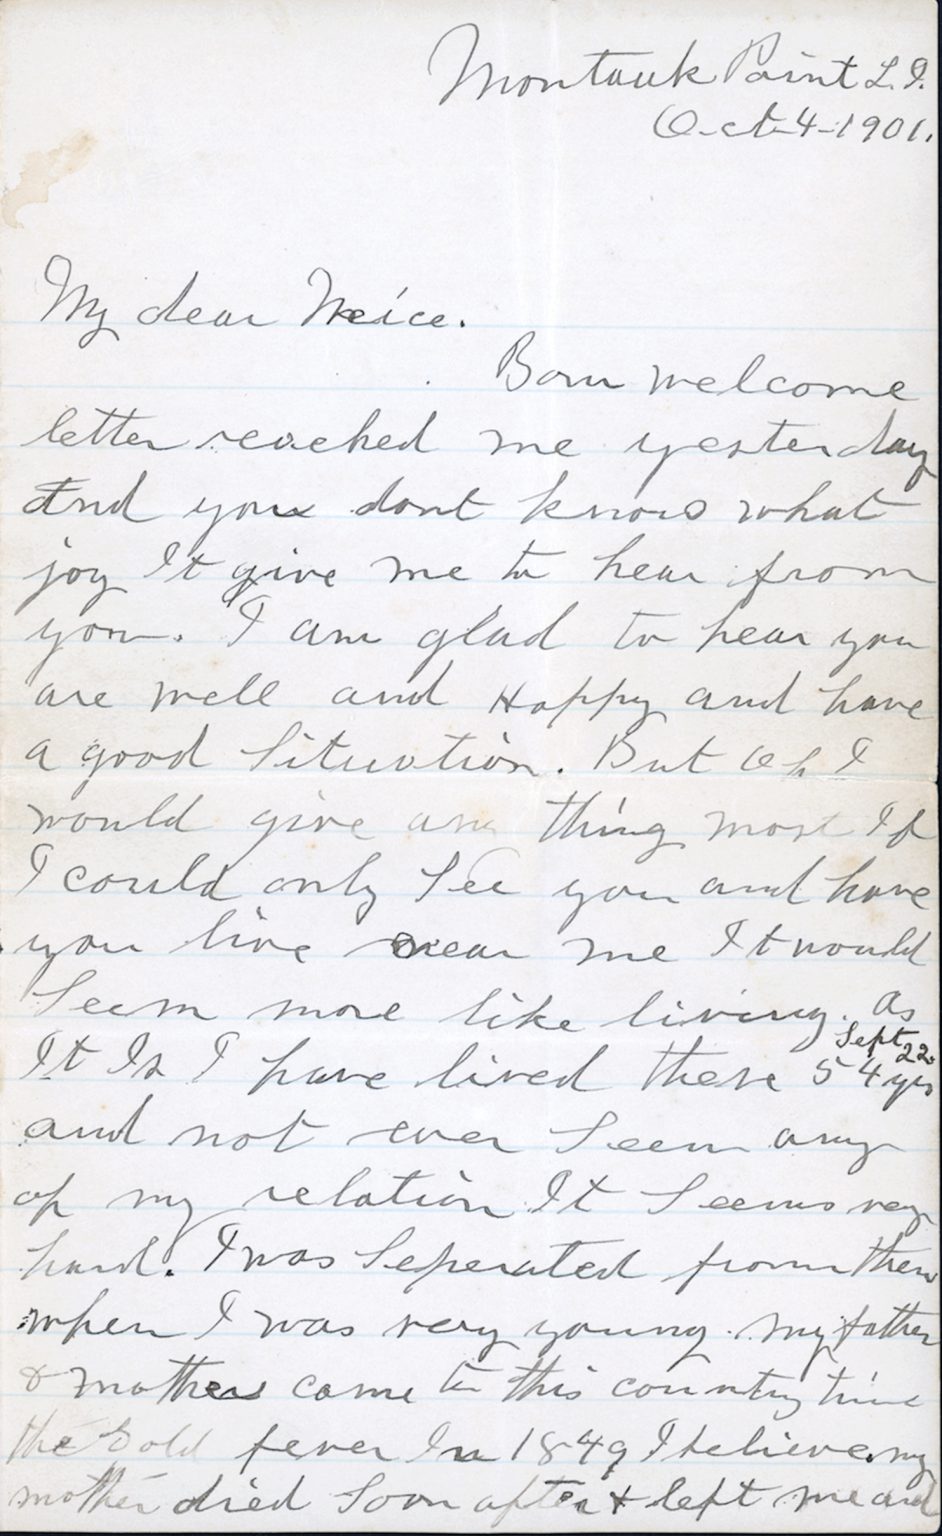 Montauk Point L. I.
Oct-4-1901.
My dear Neice.
Your welcome
letter reached me yesterday
and you dont know what
joy It give me to hear from
you. I am glad to hear you
are well and Happy and have
a good Situation. But Oh I
would give any thing most If
I could only See you and have
you live near me It would
Seem more like living. as
Sept 22.
It Is I have lived these 54 yrs
and not ever Seem any
of my relation It Seems very
hard. I was Seperated from them
when I was very young. my father
& mother came to this country time
the Gold fever In 1849 I believe. my
mother died Soon after & left me and